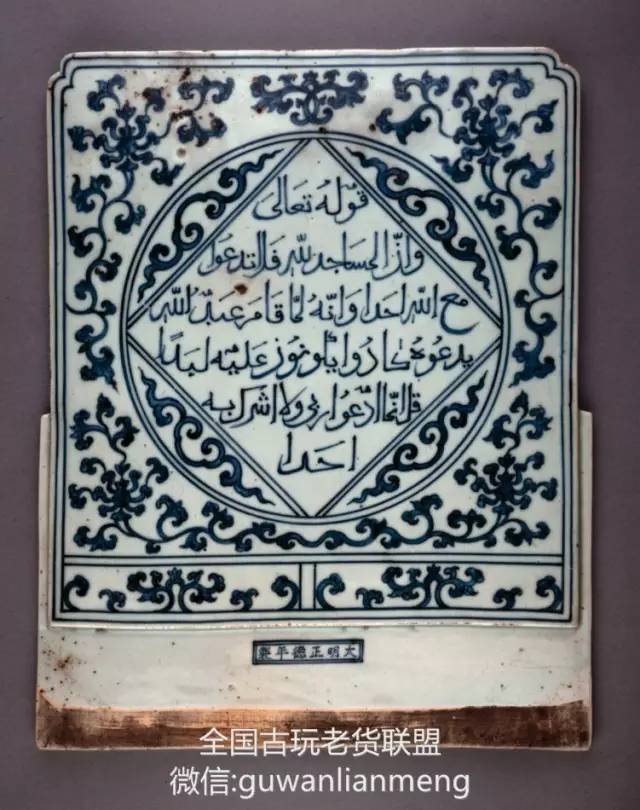 قوله تعالى
وان المساجد لله فلا تدعوا
مع الله احدا وانه لما قام عبد الله
يدعوه كادوا يكونون عليه لبدا
قل انما ادعوا ربي ولا اشرك به
احدا
大明正德年製
全国古玩老货联盟
微信:guwanlianmeng